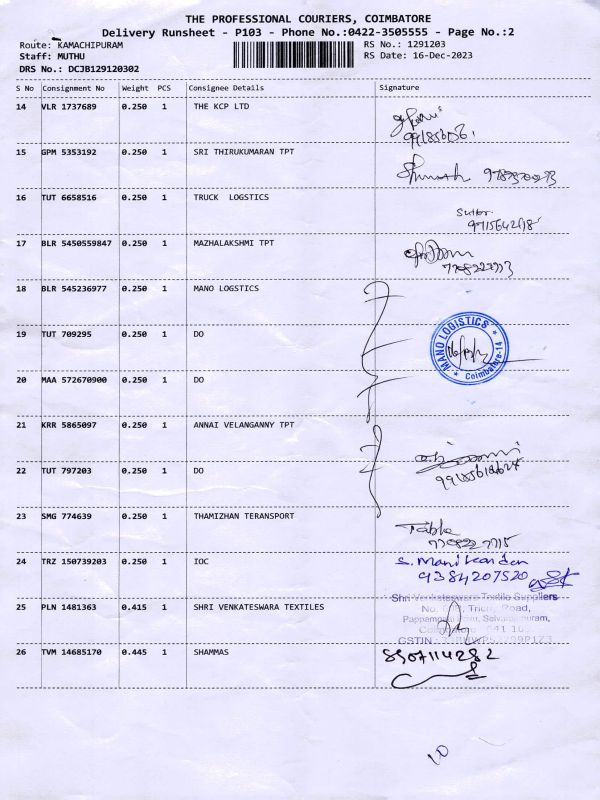 THE PROFESSIONAL COURIERS, COIMBATORE
Delivery Runsheet - P103 - Phone No.:0422-3505555 - Page No.:2
Route: KAMACHIPURAM RS No.: 1291203
Staff: MUTHU RS Date: 16-Dec-2023
DRS No.: DCJB129120302
S No Consignment No Weight PCS Consignee Details Signature
14 VLR 1737689 0.250 1 THE KCP LTD
15 GPM 5353192 0.250 1 SRI THIRUKUMARAN TPT
16 TUT 6658516 0.250 1 TRUCK LOGSTICS
17 BLR 5450559847 0.250 1 MAZHALAKSHMI TPT
18 BLR 545236977 0.250 1 MANO LOGSTICS
19 TUT 709295 0.250 1 DO
MANO LOGISTICS
Coimbatore-14
20 MAA 572670900 0.250 1 DO
21 KRR 5865097 0.250 1 ANNAI VELANGANNY TPT
22 TUT 797203 0.250 1 DO
23 SMG 774639 0.250 1 THAMIZHAN TERANSPORT
24 TRZ 150739203 0.250 1 IOC
S. Manikandan
9384207520
25 PLN 1481363 0.415 1 SHRI VENKATESWARA TEXTILES
Shri Venkateswara Textile Suppliers
Road,
26 TVM 14685170 0.445 1 SHAMMAS
8907114282
10